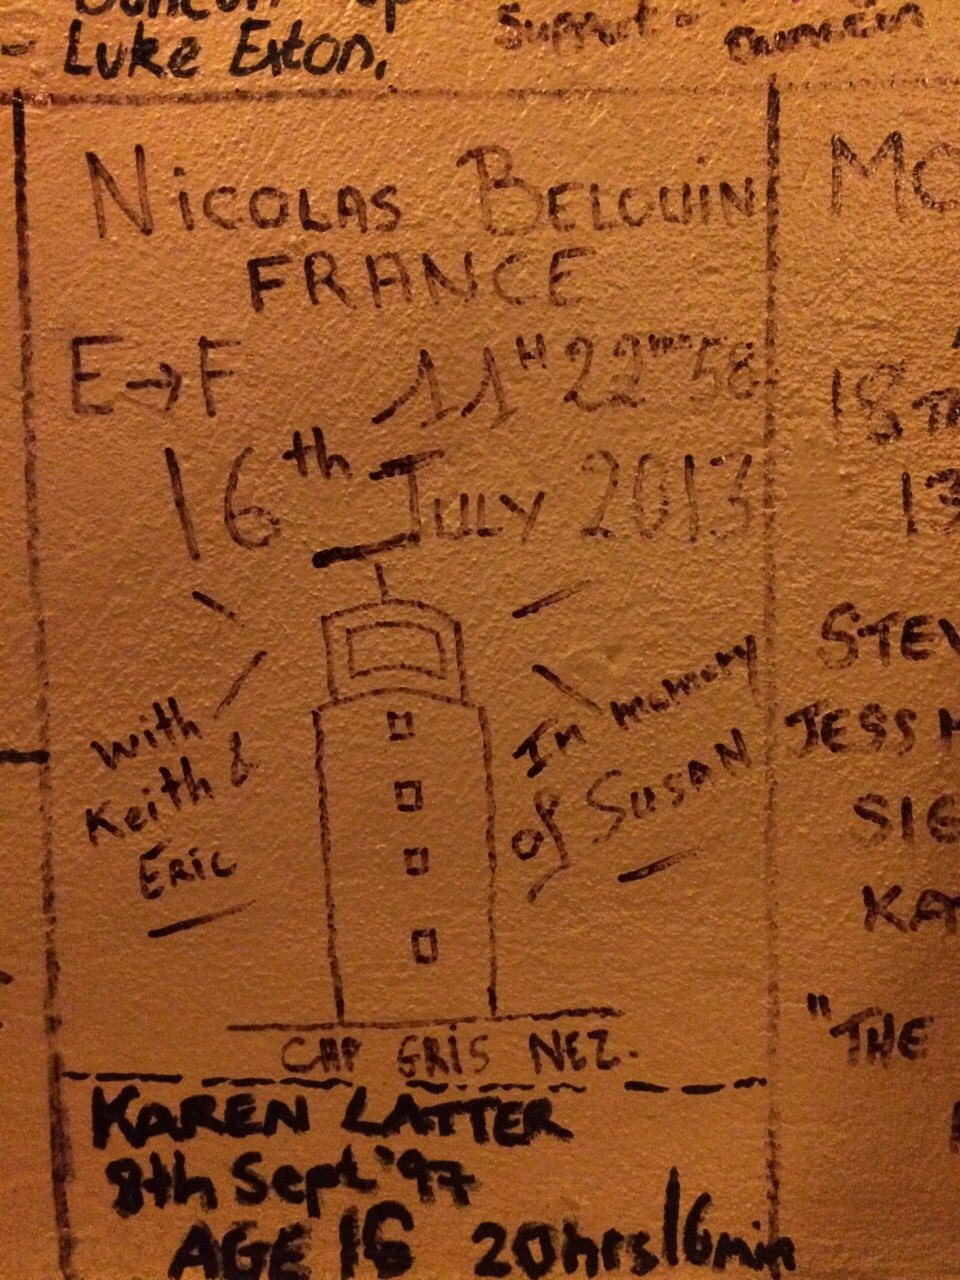 - Luke Exton.
Support -
NICOLAS BELOUIN
FRANCE
E→F 11H 22mn 56
16th JULY 2013
With
Keith &
Eric
In memory
of SUSAN
CAP GRIS NEZ.
KAREN LATTER
8th Sept '97
AGE 16 20hrs 16min
MO
18TH
13
STEV
JESS M
SIE
KA
"THE